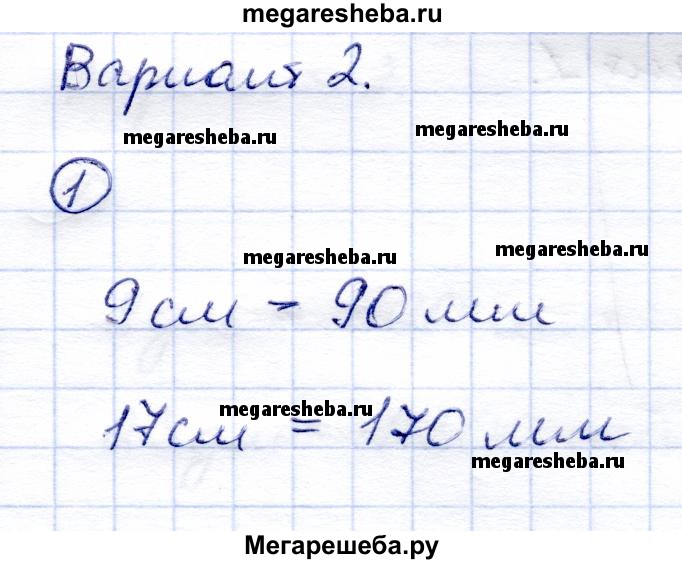 megaresheba.ru
Вариант 2.
megaresheba.ru
megaresheba.ru
1
megaresheba.ru
megaresheba.ru
9 см = 90 мм
megaresheba.ru
17 см = 170 мм
megaresheba.ru
Мегарешеба.ру